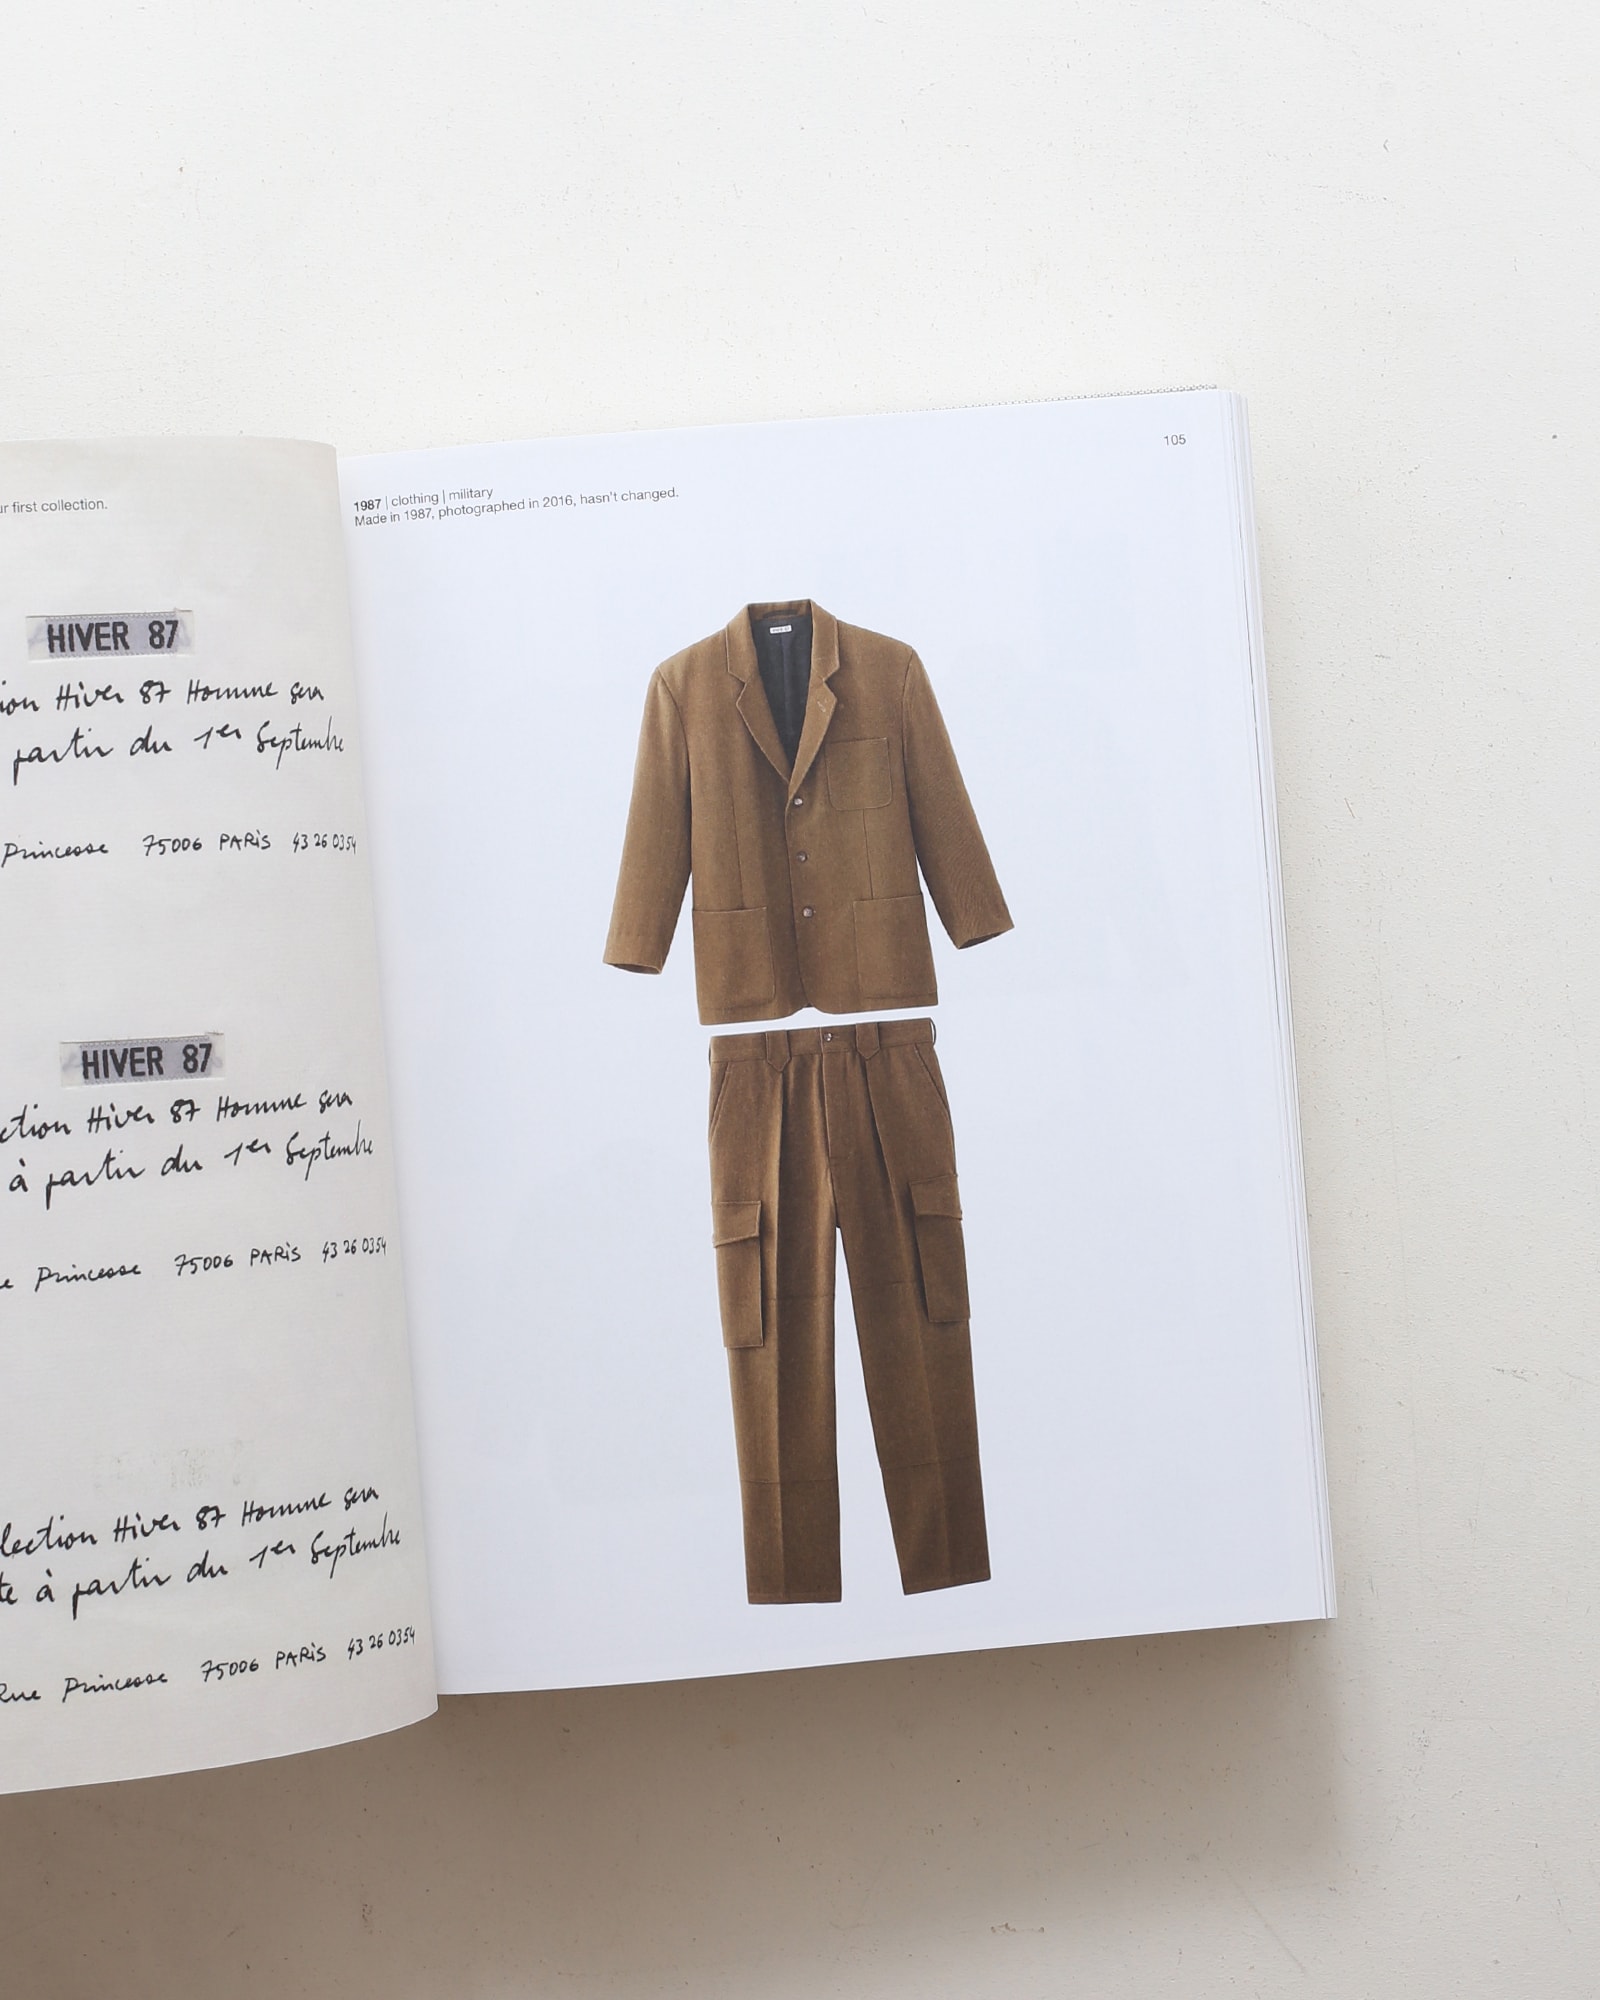 ur first collection.
HIVER 87
ion Hiver 87 Homme sera
partir du 1er Septembre
Princesse 75006 PARiS 43 26 03 54
HIVER 87
ction Hiver 87 Homme sera
à partir du 1er Septembre
e Princesse 75006 PARiS 43 26 03 54
llection Hiver 87 Homme sera
te à partir du 1er Septembre
Rue Princesse 75006 PARiS 43 26 03 54
105
1987 | clothing | military
Made in 1987, photographed in 2016, hasn't changed.